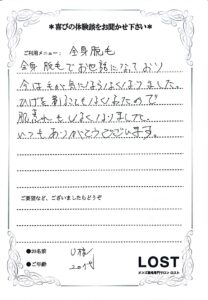 ＊喜びの体験談をお聞かせ下さい＊
ご利用メニュー： 全身脱毛
全身脱毛でお世話になっており
今は毛が気にならなくなりました。
ひげを剃らなくてもよくなったので
肌荒れもしなくなりました。
いつもありがとうございます。
ご要望など、ございましたらどうぞ
●お名前 U様
●ご年齢 20代
LOST
メンズ脱毛専門サロン ロスト